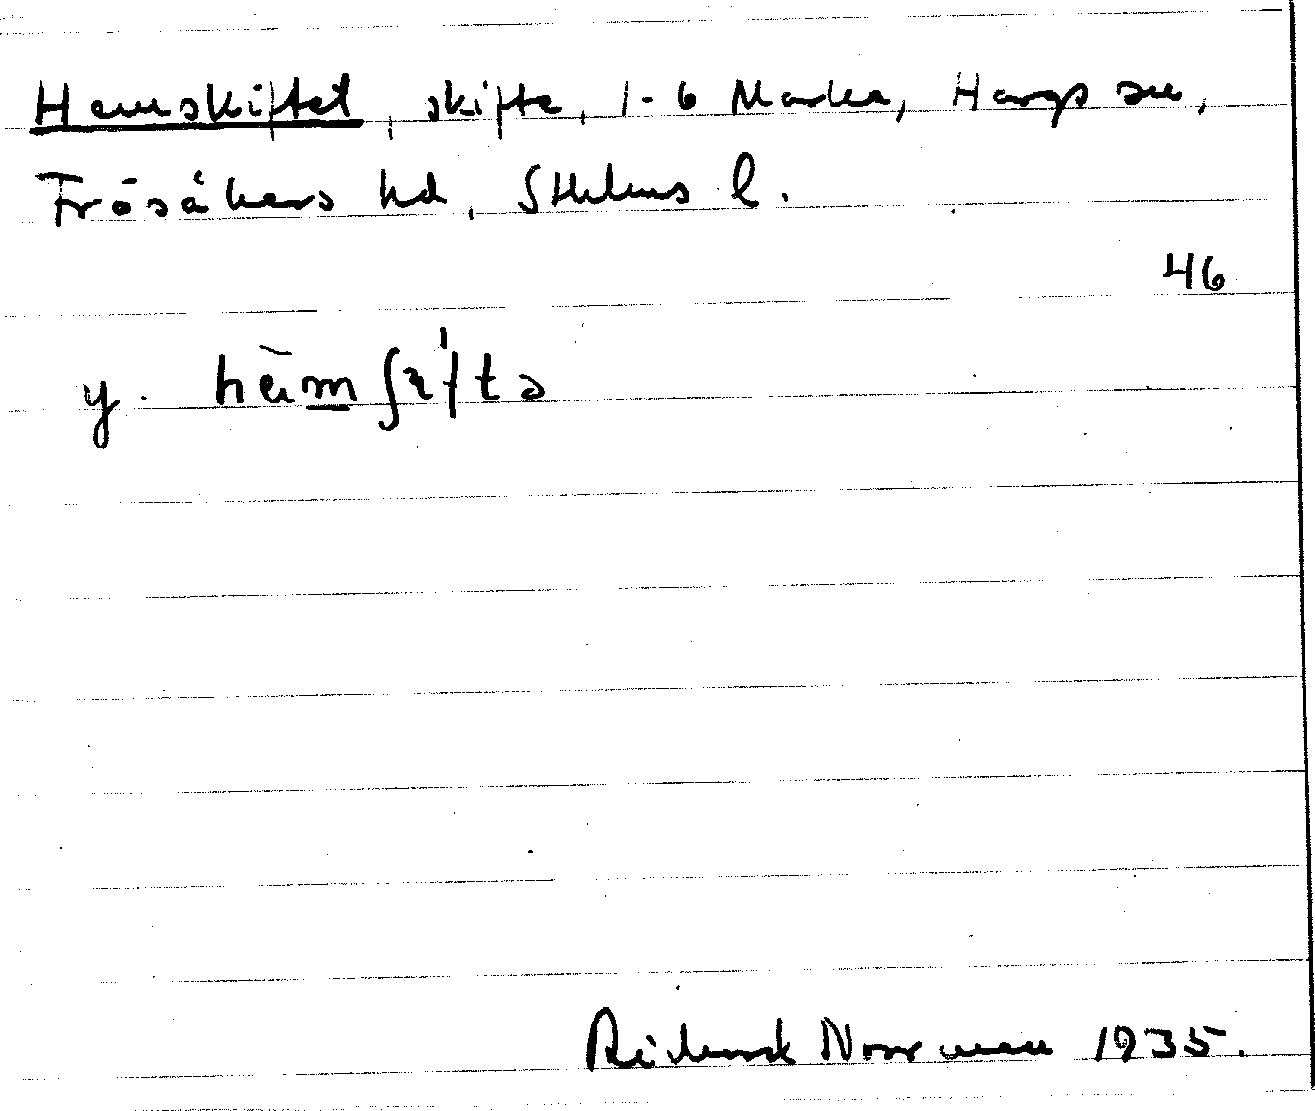 Hemskiftet, skifte, 1-6 Marka, Hargs sn,
Frösåkers hd, Sthlms l.
46
y.
Rikard Norrman 1935.